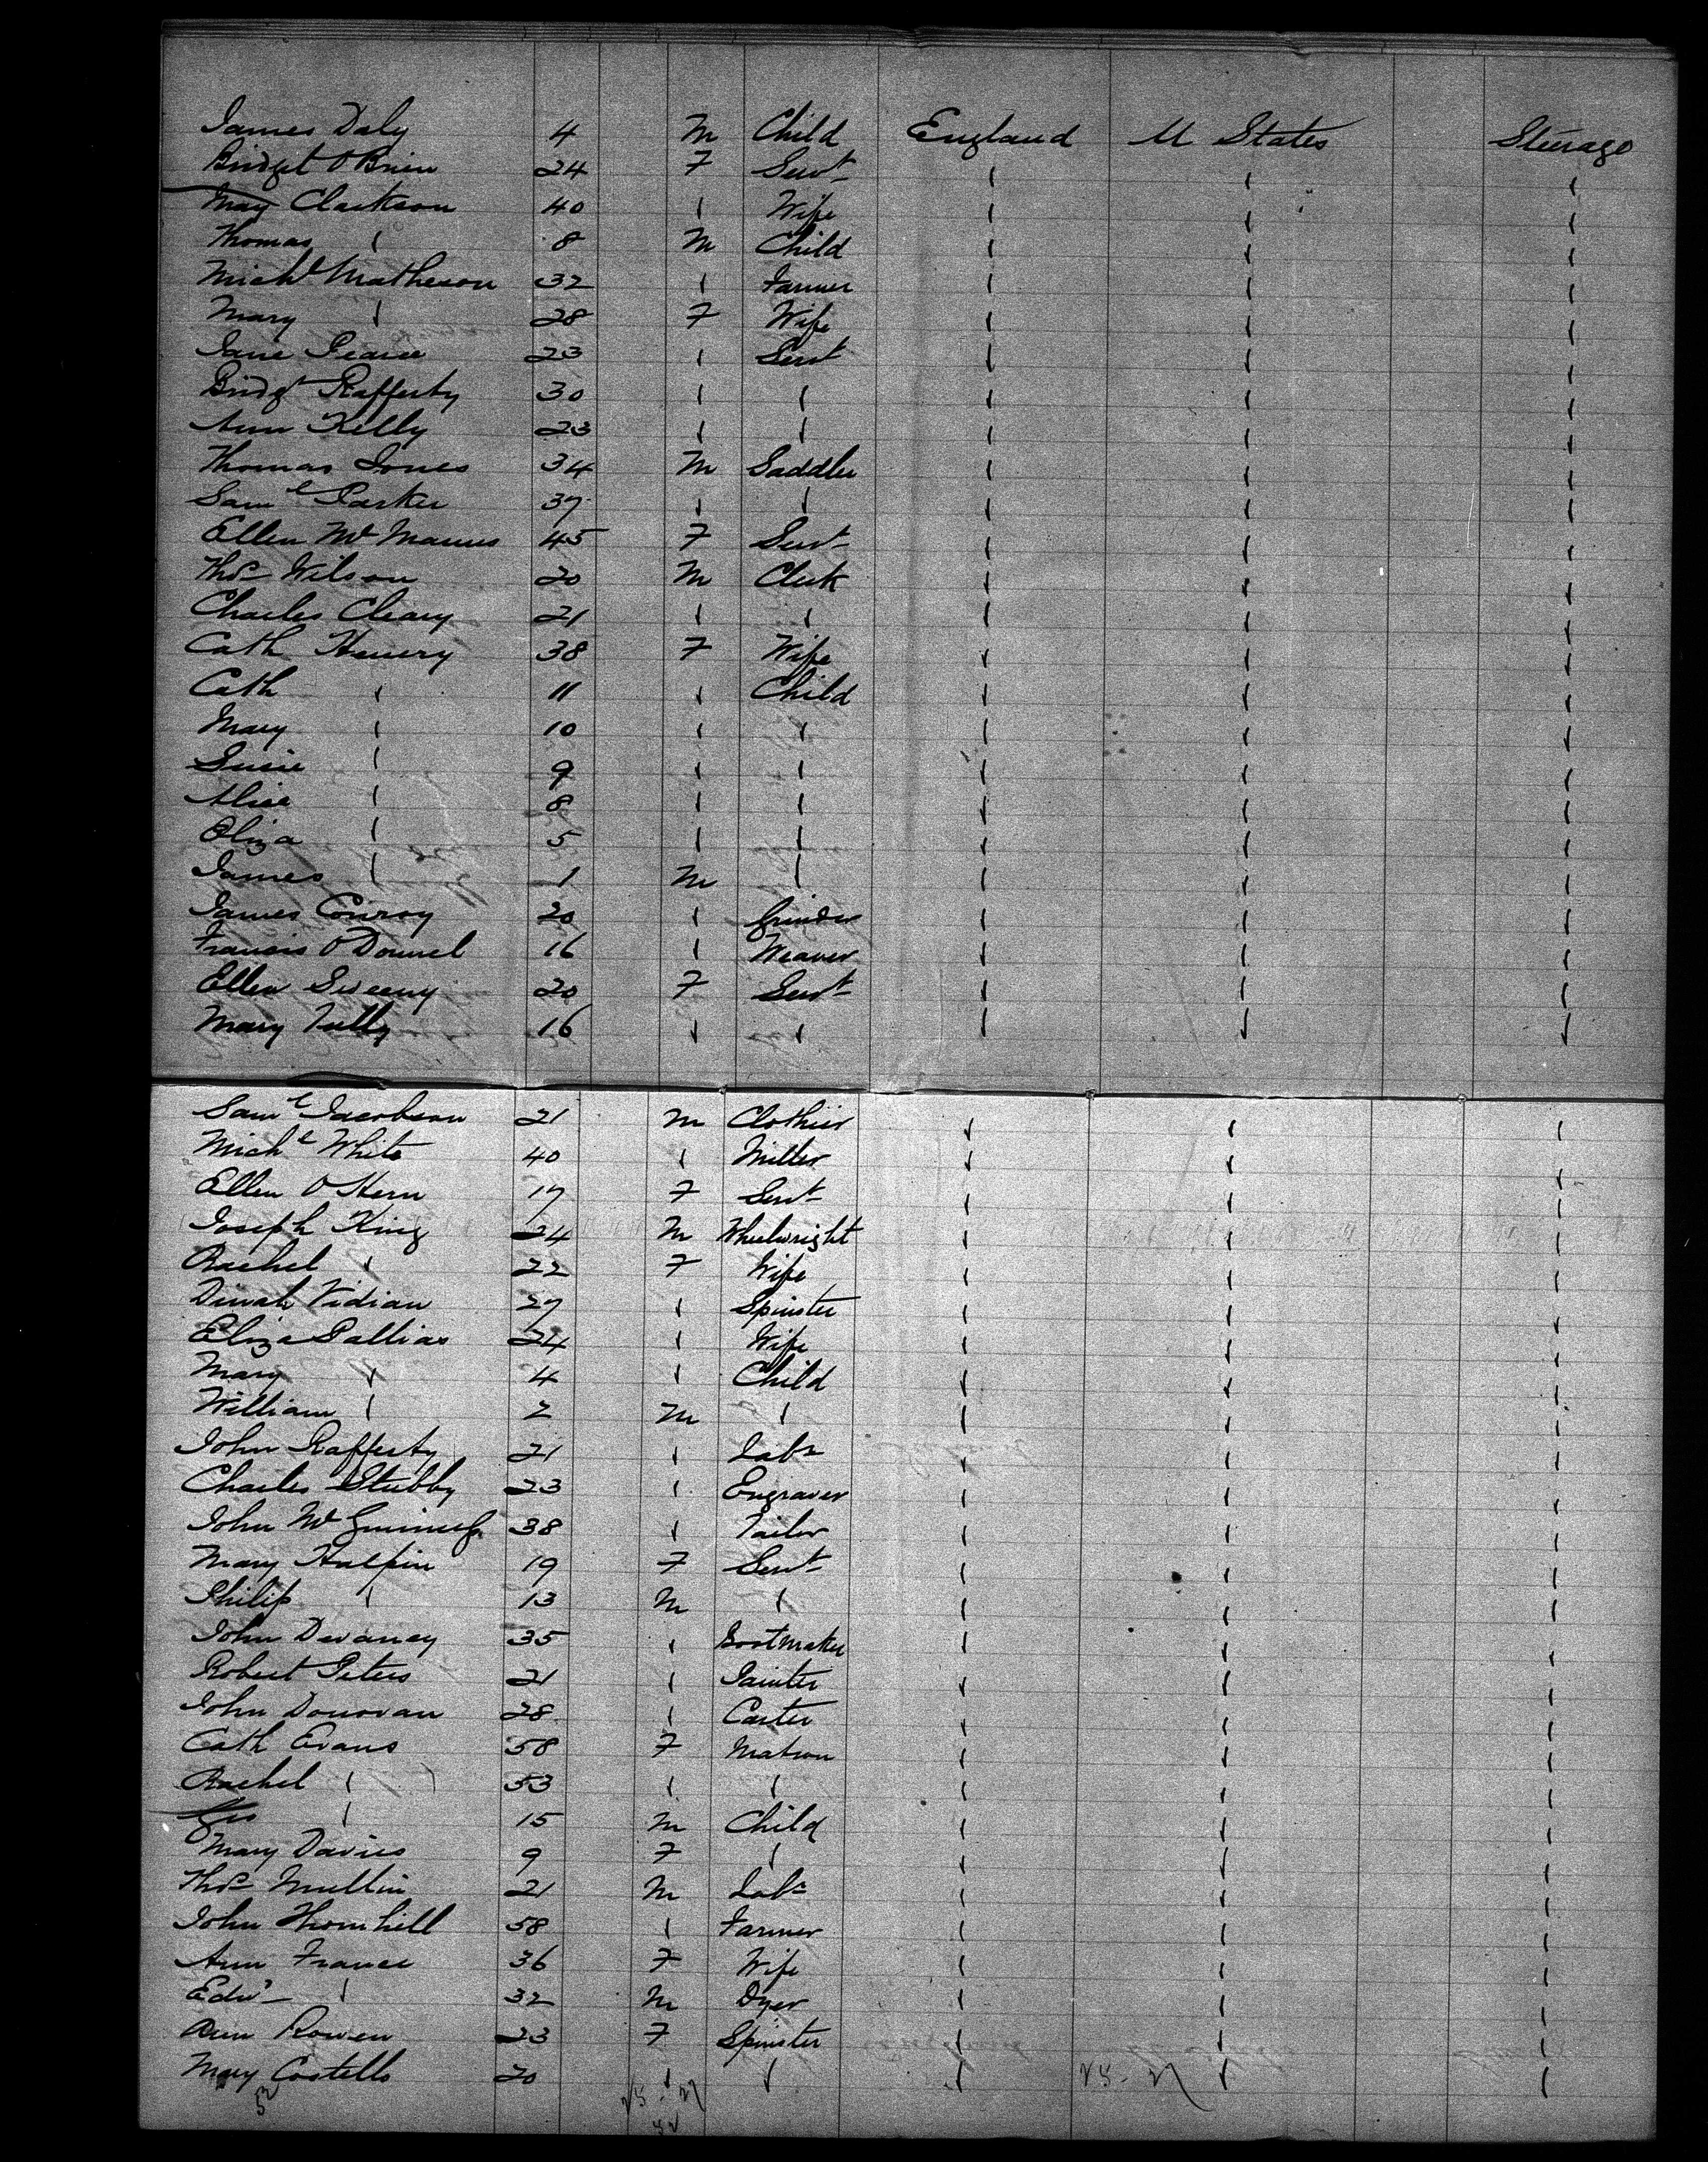 James Daly 4 M Child England U States Steerage
Bridget O'Brien 24 F Servt
May Clarkson 40 " Wife
Thomas " 8 M Child
Michl Matheson 32 " Farmer
Mary " 28 F Wife
Jane Pearce 23 " Servt
Bridgt Rafferty 30 " "
Ann Kelly 23 " "
Thomas Jones 34 M Saddler
Saml Parker 37 " "
Ellen McManus 45 F Servt
Thos Wilson 20 M Clerk
Charles Cleary 21 " "
Cath Henery 38 F Wife
Cath " 11 " Child
Mary " 10 " "
Susie " 9 " "
Alice " 8 " "
Eliza " 5 " "
James " 1 M "
James Conroy 20 " Grinder
Francis O'Donnel 16 " Weaver
Ellen Sweeny 20 F Servt
Mary Tully 16 " "
Saml Jacobson 21 M Clothier
Michl White 40 " Miller
Ellen O'Hern 17 F Servt
Joseph King 24 M Wheelwright
Rachel " 22 F Wife
Dinah Vidian 27 " Spinster
Eliza Pallias 24 " Wife
Mary " 4 " Child
William " 2 M "
John Rafferty 21 " Labr
Charles Stubby 23 " Engraver
John McGuiness 38 " Tailor
Mary Halpin 19 F Servt
Philip " 13 M "
John Devaney 35 " Bootmaker
Robert Peters 21 " Painter
John Donovan 28 " Carter
Cath Evans 58 F Matron
Rachel " 53 " "
" 15 M Child
Mary Davies 9 F "
Thos Mullin 21 M Labr
John Thornhill 58 " Farmer
Ann France 36 F Wife
Edwd " 32 M Dyer
Ann Rowen 23 F Spinster
Mary Costello 20 " "
52 25 - 27 25 - 27
52